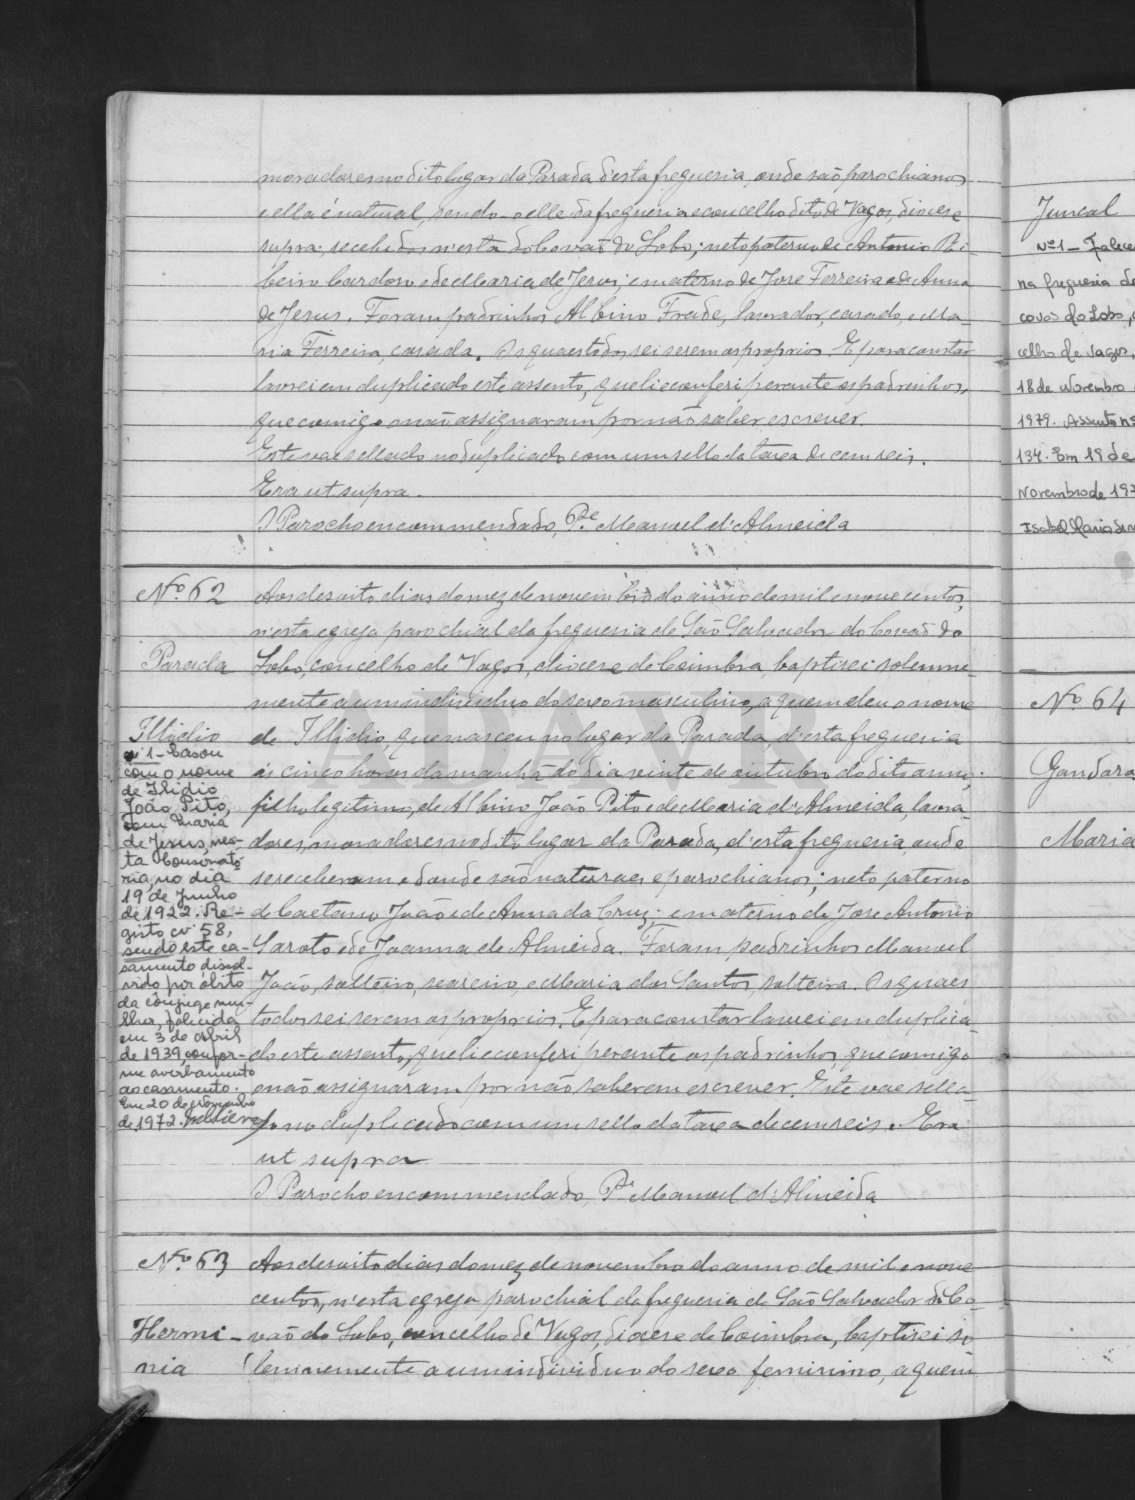 moradores no dito lugar da Parada d'esta freguesia, onde são parochianos
e ella é natural, sendo-o elle da freguesia e concelho dito de Vagos, diocese
supra, recebidos n'esta do Covão do Lobo; neto paterno de Antonio Ri-
beiro Cardoso e de Maria de Jesus; e materno de Jose Ferreira e de Anna
de Jesus. Foram padrinhos Albino Frade, lavrador, casado, e Ma-
ria Ferreira, casada. Os quaes todos sei serem os proprios. E para constar
lavrei em duplicado este assento, que li e conferi perante os padrinhos,
que comigo o não assignaram por não saber escrever.
Este vae sellado no duplicado com um sello da taxa de cem reis.
Era ut supra.
O Parocho encommendado, P.e Manuel d'Almeida
Nº 62
Parada
Illidio
nº 1 - Casou
com o nome
de Ilidio
João Pito,
com Maria
de Jesus, nes-
ta Conservató-
ria, no dia
19 de Junho
de 1922. Re-
gisto nº 58,
sendo este ca-
samento dissol-
vido por óbito
da cônjuge mu-
lher, falecida
em 3 de Abril
de 1939, confor-
me averbamento
ao casamento.
Em 20 de Novembro
de 1972.
Aos desoito dias do mez de novembro do anno de mil e nove centos,
n'esta egreja parochial da freguesia de São Salvador do Covão do
Lobo, concelho de Vagos, diocese de Coimbra, baptisei solemne-
mente a um individuo do sexo masculino, a quem deu o nome
de Illidio, que nasceu no lugar da Parada, d'esta freguesia
ás cinco horas da manhã do dia vinte de outubro do dito anno,
filho legitimo, de Albino João Pito e de Maria d'Almeida, lavra-
dores, moradores no dito lugar da Parada, d'esta freguesia, onde
se receberam e donde são naturaes e parochianos; neto paterno
de Caetano João e de Anna da Cruz; e materno de Jose Antonio
Saroto e de Joanna de Almeida. Foram padrinhos Manuel
João, solteiro, seareiro, e Maria dos Santos, solteira. Os quaes
todos sei serem os proprios. E para constar lavrei em duplica-
do este assento, que li e conferi perante os padrinhos, que comigo
o não assignaram por não saberem escrever. Este vae sella-
do no duplicado com um sello da taxa de cem reis. Era
ut supra
O Parocho encommendado, P.e Manuel d'Almeida
Nº 63
Hermi-
nia
Aos desoito dias do mez de novembro do anno de mil e nove
centos, n'esta egreja parochial da freguesia de São Salvador do Co-
vão do Lobo, concelho de Vagos, diocese de Coimbra, baptisei so-
lemnemente a um individuo do sexo feminino, a quem
Juncal
Nº 1 - Falece
na freguesia de
covão do Lobo,
celho de Vagos,
18 de Novembro
1979. Assento nº
134. Em 19 de
Novembro de 197
Isabel Maria
Nº 64
Gandara
Maria
ADAVR